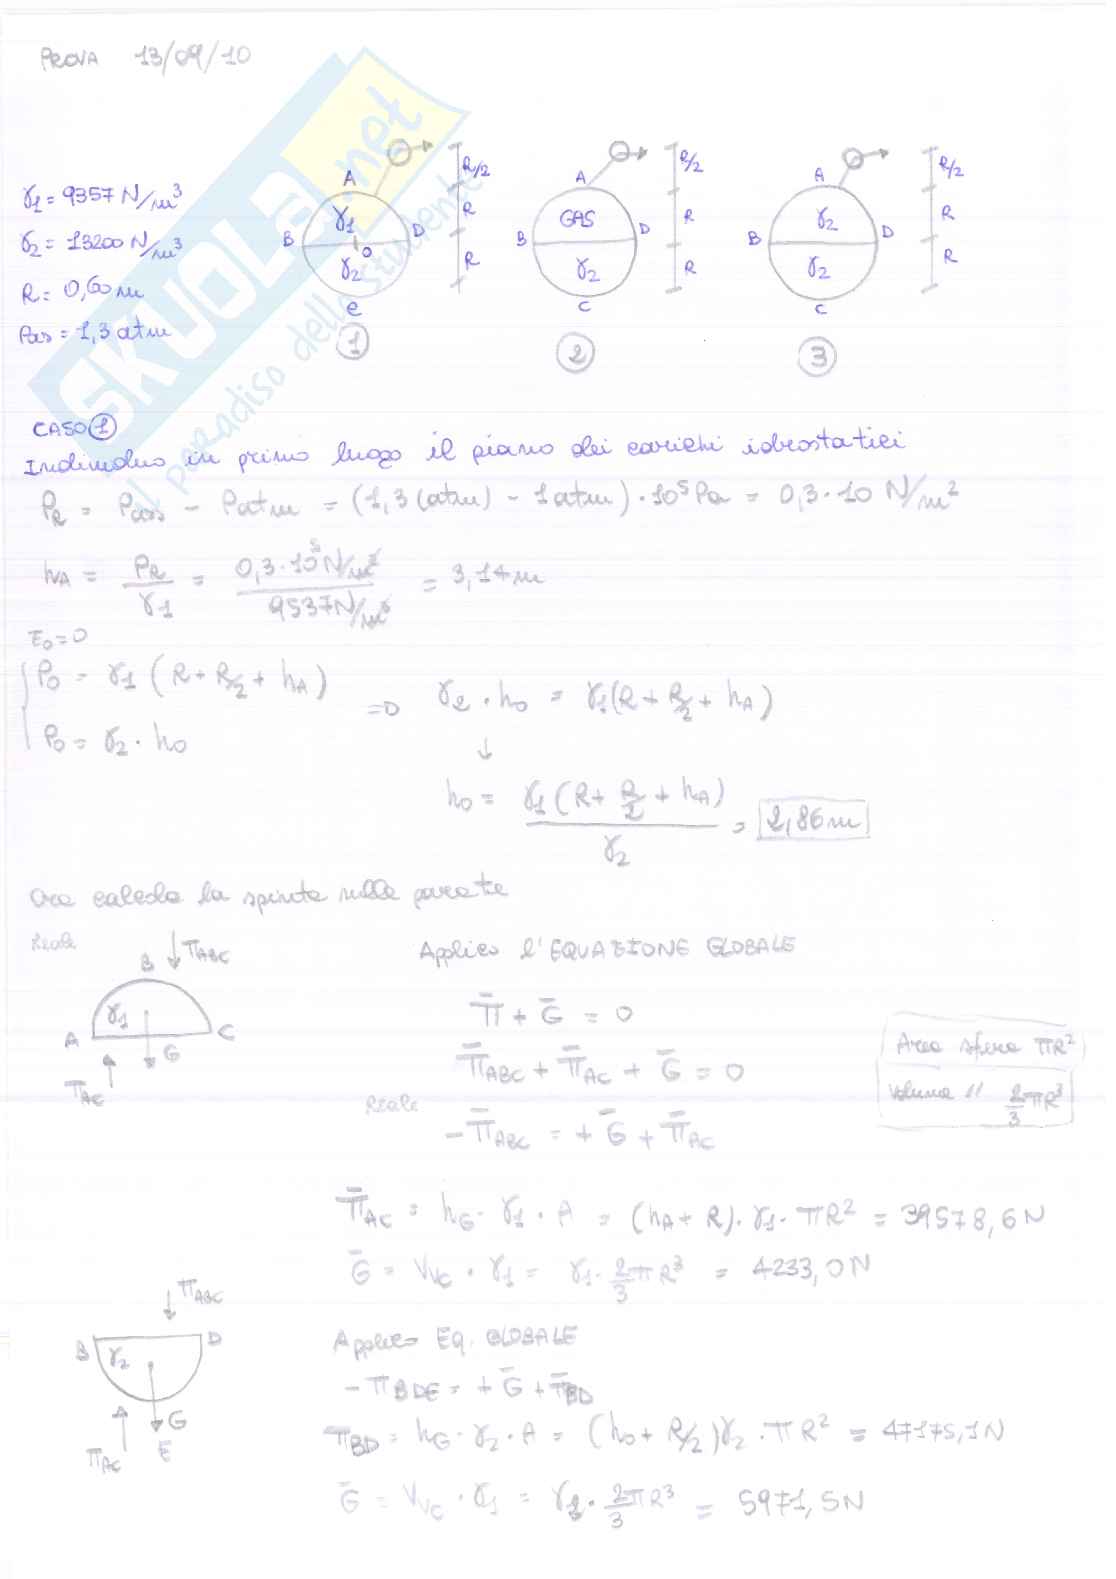 PROVA 13/09/10
γ1 = 9357 N/m³
γ2 = 13200 N/m³
R = 0,60 m
Pas = 1,3 atm
A
γ1
B
D
O
γ2
C
R/2
R
R
1
A
GAS
B
D
γ2
C
R/2
R
R
2
A
γ2
B
D
γ2
C
R/2
R
R
3
SKUOLA.net
il paradiso dello studente
CASO 1
Individuo in primo luogo il piano dei carichi idrostatici
PR = Pass - Patm = (1,3 (atm) - 1 atm) · 10⁵ Pa = 0,3 · 10 N/m²
hA = PR/γ1 = 0,3 · 10⁵ N/m² / 9537 N/m³ = 3,14 m
Eo = 0
Po = γ1 (R + R/2 + hA)
Po = γ2 · ho
=D γ2 · ho = γ1 (R + R/2 + hA)
↓
ho = γ1 (R + R/2 + hA) / γ2 = 2,86 m
Ora calcolo la spinta sulle parete
Reale
B
ΠABC
γ1
A
C
G
ΠAC
Applico l'EQUAZIONE GLOBALE
Π̄ + Ḡ = 0
Π̄ABC + Π̄AC + Ḡ = 0
Area sfera πR²
Volume // 2/3 πR³
Reale
-Π̄ABC = + Ḡ + Π̄AC
Π̄AC = hG · γ1 · A = (hA + R) · γ1 · πR² = 39578,6 N
Ḡ = Vvc · γ1 = γ1 · 2/3 πR³ = 4233,0 N
ΠABC
B
D
γ2
G
E
ΠAC
Applico Eq. GLOBALE
-ΠBDE = + Ḡ + Π̄BD
ΠBD = hG · γ2 · A = (ho + R/2) γ2 · πR² = 47175,1 N
Ḡ = Vvc · γ1 = γ2 · 2/3 πR³ = 5971,5 N